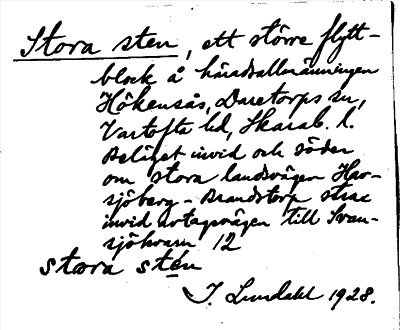 Stora sten, ett större flytt-
block å häradsallmänningen
Hökensås, Daretorps sn,
Vartofta hd, Skarab. l.
Beläget invid och söder
om stora landsvägen Hav-
sjöberg - Brandstorp strax
invid avtagsvägen till Svan-
sjökvarn 12
stora stén
J. Lundahl 1928.